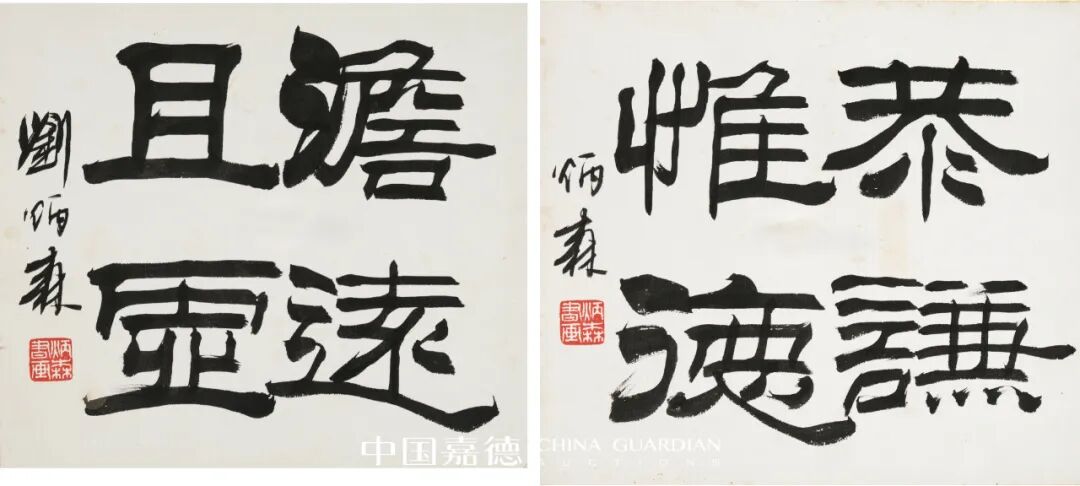 澹遠
且虛
劉炳森
炳森
書画
恭謙
惟德
炳森
炳森
書画
中国嘉德
CHINA GUARDIAN
AUCTIONS